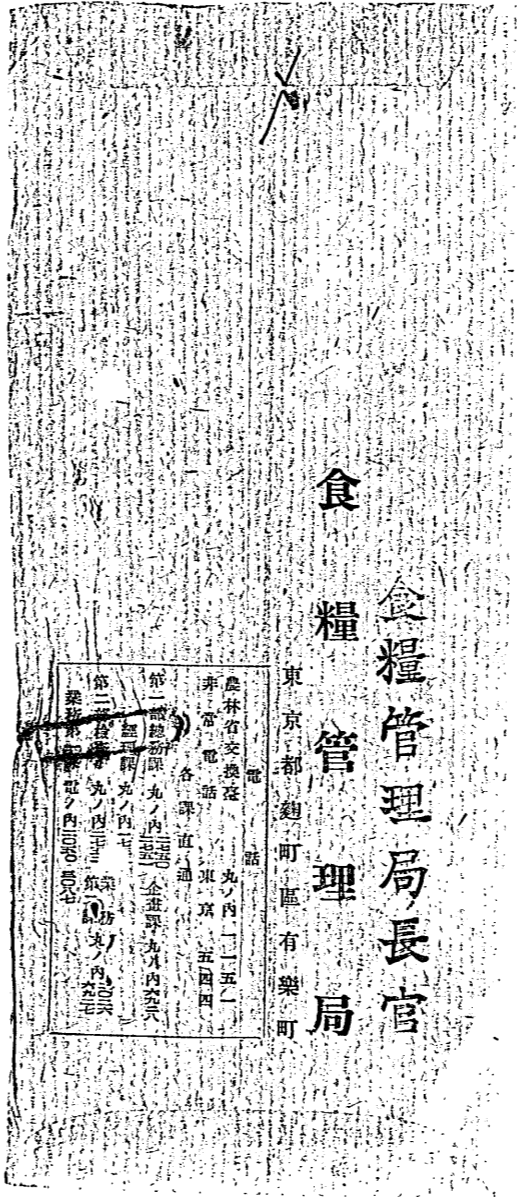 食糧管理局長官
食糧管理局
東京都麹町區有樂町
電話
農林省交換臺 丸ノ内 一一五一
非常電話 東京 五四四
各課直通
第一部總務課 丸ノ内 企畫課 丸ノ内
經理課 丸ノ内
第二部 丸ノ内 業務第一課 丸ノ内
業務第 課 丸ノ内